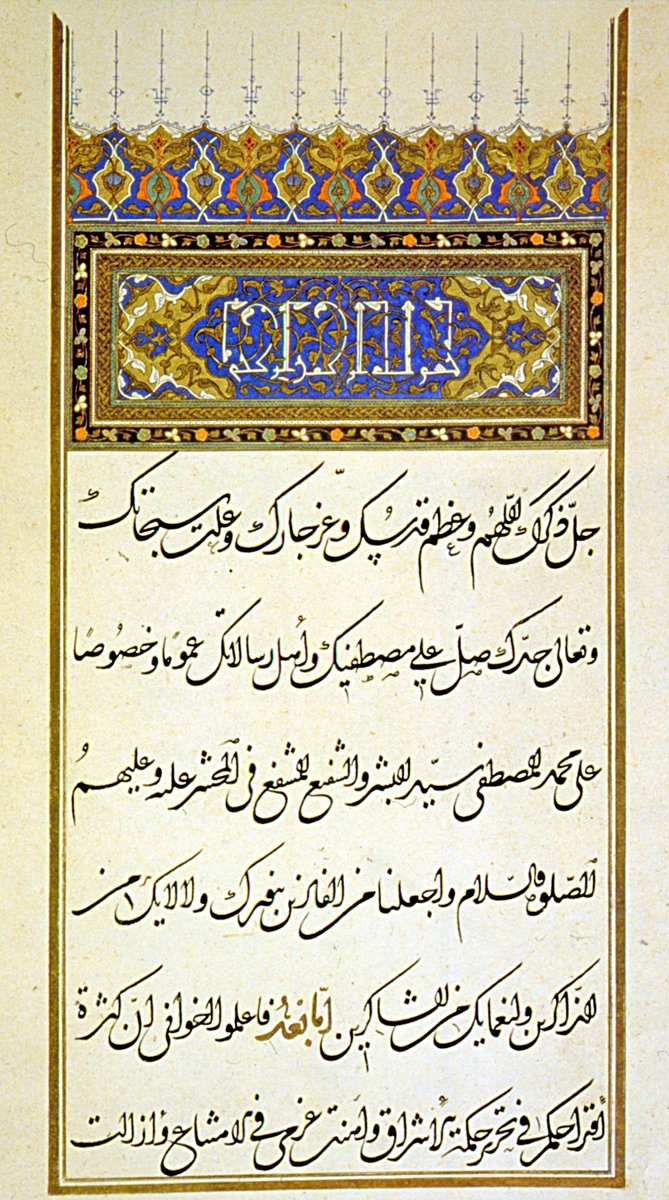 جلّ ذكرك اللّهمّ وعظم قدسك وعزّ جارك وعلت سبحاتك
وتعالى جدّك صلّ على مصطفيك وأهل رسالاتك عمومًا وخصوصًا
على محمد المصطفى سيّد البشر والشفيع المشفع في المحشر عليه وعليهم
الصلوة والسلام واجعلنا من الفائزين بنورك ولآلائك من
الذاكرين ولنعمايك من الشاكرين أمّا بعد فاعلموا اخواني انّ كثرة
اقتراحكم في تحرير حكمة الاشراق وأهنت عزمي في الامتناع وأزالت